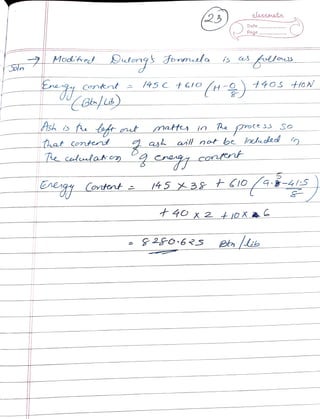 23
classmate
Date
Page
Soln → Modified Dulong's formula is as follows
Energy content = 145 C + 610 (H - O/8) + 40 S + 10 N
(Btu/Lib)
Ash is the left out matter in the process so
that content of ash will not be included in
The calculation of energy content
Energy Content = 145 × 38 + 610 (9.5 - 41.5/8)
+ 40 × 2 + 10 × 6
= 8280.625 Btu/lib